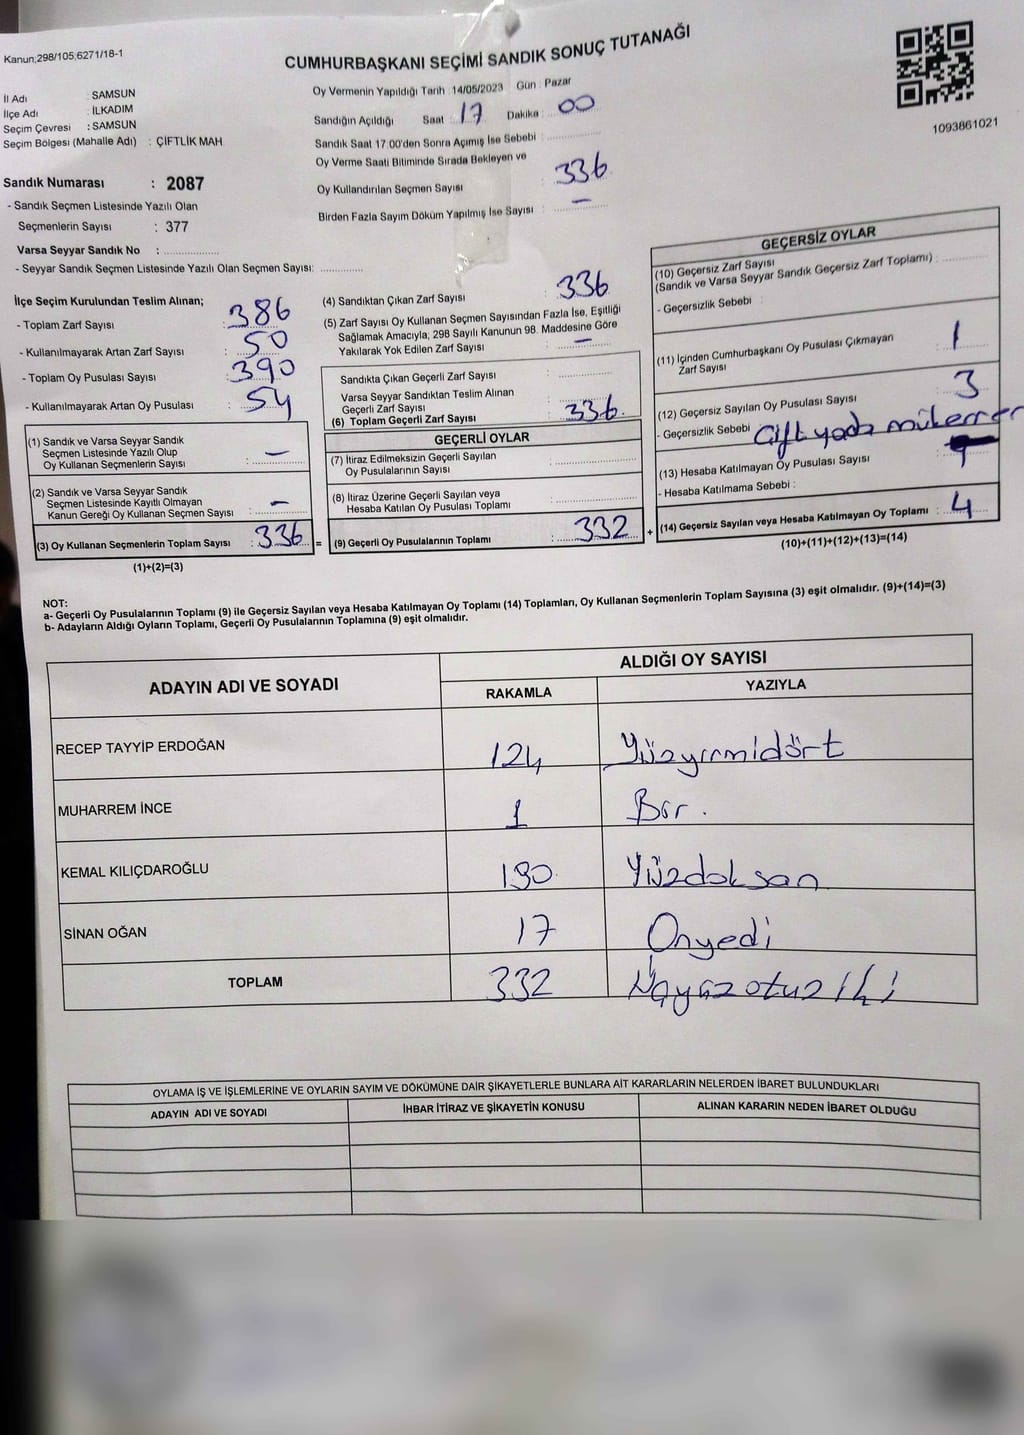 Kanun;298/105,6271/18-1
CUMHURBAŞKANI SEÇİMİ SANDIK SONUÇ TUTANAĞI
1093861021
İl Adı : SAMSUN
İlçe Adı : İLKADIM
Seçim Çevresi : SAMSUN
Seçim Bölgesi (Mahalle Adı) : ÇİFTLİK MAH
Sandık Numarası : 2087
- Sandık Seçmen Listesinde Yazılı Olan
Seçmenlerin Sayısı : 377
Varsa Seyyar Sandık No :
- Seyyar Sandık Seçmen Listesinde Yazılı Olan Seçmen Sayısı:
Oy Vermenin Yapıldığı Tarih :14/05/2023 Gün : Pazar
Sandığın Açıldığı Saat : 17 Dakika : 00
Sandık Saat 17:00'den Sonra Açımış İse Sebebi :
Oy Verme Saati Bitiminde Sırada Bekleyen ve
Oy Kullandırılan Seçmen Sayısı : 336
Birden Fazla Sayım Döküm Yapılmış İse Sayısı : -
İlçe Seçim Kurulundan Teslim Alınan;
- Toplam Zarf Sayısı : 386
- Kullanılmayarak Artan Zarf Sayısı : 50
- Toplam Oy Pusulası Sayısı : 390
- Kullanılmayarak Artan Oy Pusulası : 54
(1) Sandık ve Varsa Seyyar Sandık
Seçmen Listesinde Yazılı Olup
Oy Kullanan Seçmenlerin Sayısı : -
(2) Sandık ve Varsa Seyyar Sandık
Seçmen Listesinde Kayıtlı Olmayan
Kanun Gereği Oy Kullanan Seçmen Sayısı : -
(3) Oy Kullanan Seçmenlerin Toplam Sayısı : 336 =
(1)+(2)=(3)
(4) Sandıktan Çıkan Zarf Sayısı : 336
(5) Zarf Sayısı Oy Kullanan Seçmen Sayısından Fazla İse, Eşitliği
Sağlamak Amacıyla; 298 Sayılı Kanunun 98. Maddesine Göre
Yakılarak Yok Edilen Zarf Sayısı : -
Sandıkta Çıkan Geçerli Zarf Sayısı :
Varsa Seyyar Sandıktan Teslim Alınan
Geçerli Zarf Sayısı :
(6) Toplam Geçerli Zarf Sayısı : 336
GEÇERLİ OYLAR
(7) İtiraz Edilmeksizin Geçerli Sayılan
Oy Pusulalarının Sayısı :
(8) İtiraz Üzerine Geçerli Sayılan veya
Hesaba Katılan Oy Pusulası Toplamı :
(9) Geçerli Oy Pusulalarının Toplamı : 332 +
GEÇERSİZ OYLAR
(10) Geçersiz Zarf Sayısı
(Sandık ve Varsa Seyyar Sandık Geçersiz Zarf Toplamı) :
- Geçersizlik Sebebi :
(11) İçinden Cumhurbaşkanı Oy Pusulası Çıkmayan
Zarf Sayısı : 1
(12) Geçersiz Sayılan Oy Pusulası Sayısı : 3
- Geçersizlik Sebebi : Çift yada mükerrer
(13) Hesaba Katılmayan Oy Pusulası Sayısı :
- Hesaba Katılmama Sebebi :
(14) Geçersiz Sayılan veya Hesaba Katılmayan Oy Toplamı : 4
(10)+(11)+(12)+(13)=(14)
NOT:
a- Geçerli Oy Pusulalarının Toplamı (9) ile Geçersiz Sayılan veya Hesaba Katılmayan Oy Toplamı (14) Toplamları, Oy Kullanan Seçmenlerin Toplam Sayısına (3) eşit olmalıdır. (9)+(14)=(3)
b- Adayların Aldığı Oyların Toplamı, Geçerli Oy Pusulalarının Toplamına (9) eşit olmalıdır.
ADAYIN ADI VE SOYADI ALDIĞI OY SAYISI
RAKAMLA YAZIYLA
RECEP TAYYİP ERDOĞAN 124 Yüzyirmidört
MUHARREM İNCE 1 Bir.
KEMAL KILIÇDAROĞLU 190 Yüzdoksan
SİNAN OĞAN 17 Onyedi
TOPLAM 332 Üçyüzotuziki
OYLAMA İŞ VE İŞLEMLERİNE VE OYLARIN SAYIM VE DÖKÜMÜNE DAİR ŞİKAYETLERLE BUNLARA AİT KARARLARIN NELERDEN İBARET BULUNDUKLARI
ADAYIN ADI VE SOYADI İHBAR İTİRAZ VE ŞİKAYETİN KONUSU ALINAN KARARIN NEDEN İBARET OLDUĞU